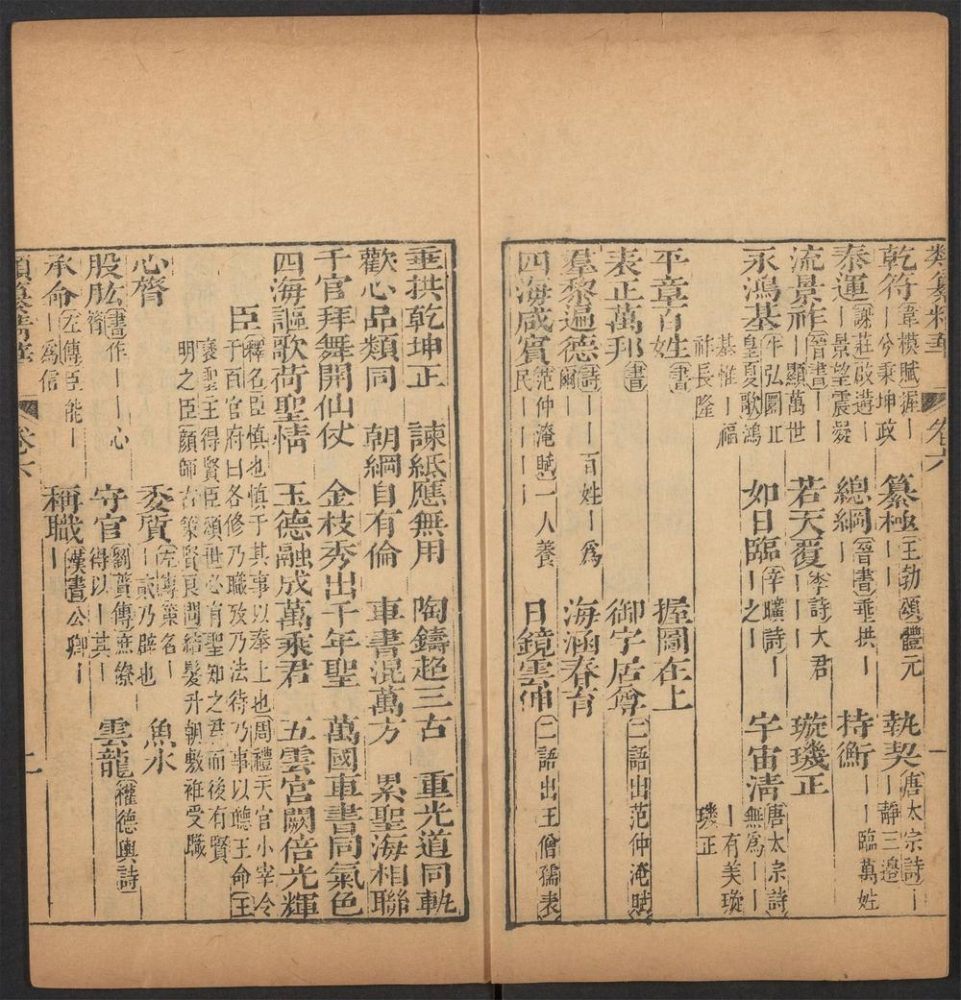 類纂精華 卷六 一
乾符 韋模賦握｜｜兮乘坤政 纂極 王勃頌體元｜｜ 執契 唐太宗詩｜｜靜三邊
泰運 謝莊啟遘｜｜景望震凝 總綱 晉書垂拱｜｜ 持衡 ｜｜臨萬姓
流景祚 晉書｜｜｜顯萬世 若天覆 李詩大君｜｜｜ 璇璣正 ｜有美璇璣正
永鴻基 牛弘圜丘皇夏歌鴻基惟｜福祚長隆 如日臨 辛曠詩｜｜之｜ 宇宙清 唐太宗詩無為｜｜｜
平章百姓 書 握圖在上
表正萬邦 書 御宇居尊 二語出范仲淹賦
羣黎遍德 詩｜｜百姓｜為｜爾｜ 海涵春育
四海咸賓 范仲淹賦一人養民｜｜｜｜ 日鏡雲伸 二語出王僧孺表
垂拱乾坤正 諫紙應無用 陶鑄超三古 重光道同軌
歡心品類同 朝綱自有倫 車書混萬方 累聖海相聯
千官拜舞開仙仗 金枝秀出千年聖 萬國車書同氣色
四海謳歌荷聖情 玉德融成萬乘君 五雲宮闕倍光輝
臣 釋名臣慎也慎于其事以奉上也 周禮天官小宰令于百官府曰各修乃職攷乃法待乃事以聽王命 王褒聖主得賢臣頌世必有聖知之君而後有賢明之臣 顏師古策賢良問結髮升朝敷衽受職
心膂 委質 左傳策名｜｜貳乃辟也 魚水
股肱 書作｜｜心膂 守官 劉蕡傳庶僚得以｜其｜ 雲龍 權德輿詩
承命 左傳臣能｜｜為信 稱職 漢書公卿｜｜
類纂精華 卷六 二